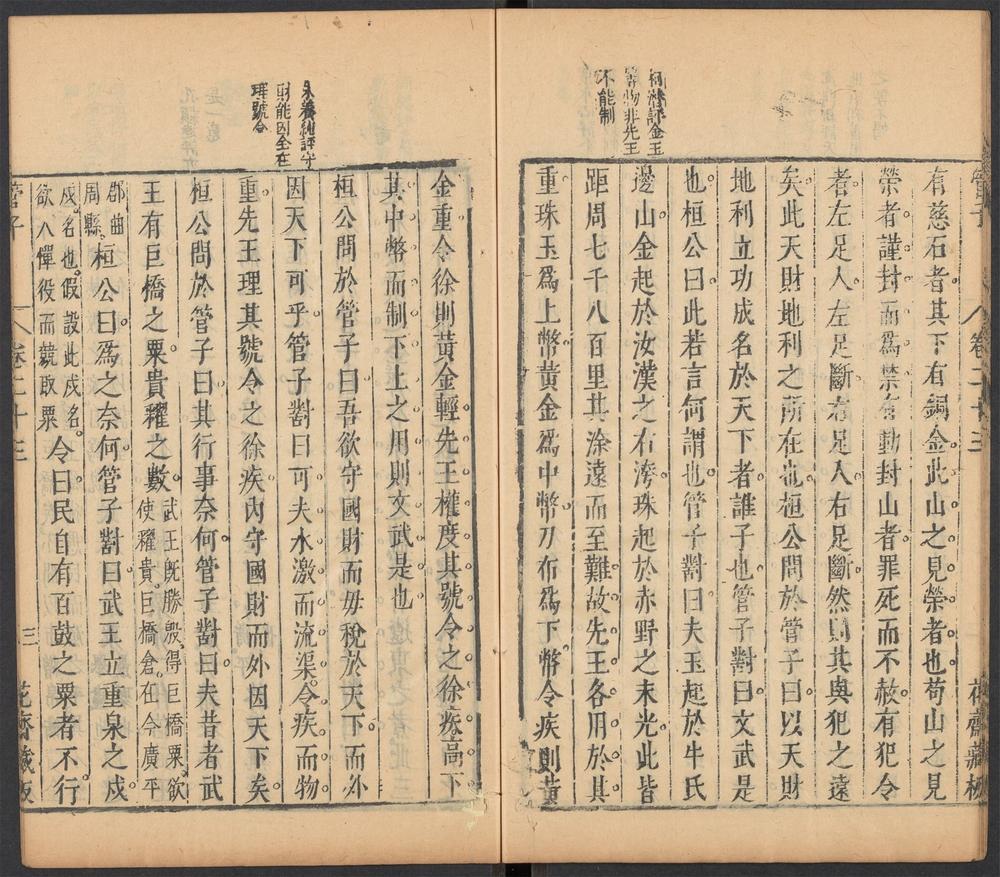 管子
卷二十三
花齋藏板
有慈石者其下有銅金此山之見榮者也苟山之見
榮者謹封而爲禁有動封山者罪死而不赦有犯令
者左足入左足斷右足入右足斷然則其與犯之遠
矣此天財地利之所在也桓公問於管子曰以天財
地利立功成名於天下者誰子也管子對曰文武是
也桓公曰此若言何謂也管子對曰夫玉起於牛氏
邊山金起於汝漢之右洿珠起於赤野之末光此皆
距周七千八百里其涂遠而至難故先王各用於其
重珠玉爲上幣黃金爲中幣刀布爲下幣令疾則黃
評金玉
等物非先王
不能制
金重令徐則黃金輕先王權度其號令之徐疾高下
其中幣而制下上之用則文武是也
桓公問於管子曰吾欲守國財而毋稅於天下而外
因天下可乎管子對曰可夫水激而流渠令疾而物
重先王理其號令之徐疾內守國財而外因天下矣
桓公問於管子曰其行事奈何管子對曰夫昔者武
王有巨橋之粟貴糴之數武王旣勝殷得巨橋粟欲
使糴貴巨橋倉在今廣平
郡曲
周縣桓公曰爲之奈何管子對曰武王立重泉之戍
戍名也假設此戍名
欲人憚役而競取粟令曰民自有百鼓之粟者不行
朱養純評守
財能因全在
理號令
管子
卷二十三
三
花齋藏板